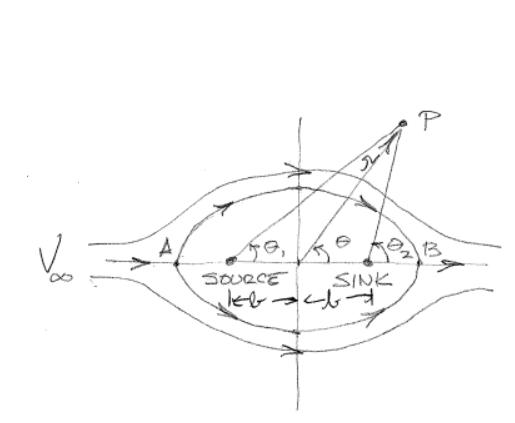 P
r
V∞ A θ₁ θ θ₂ B
SOURCE SINK
b b